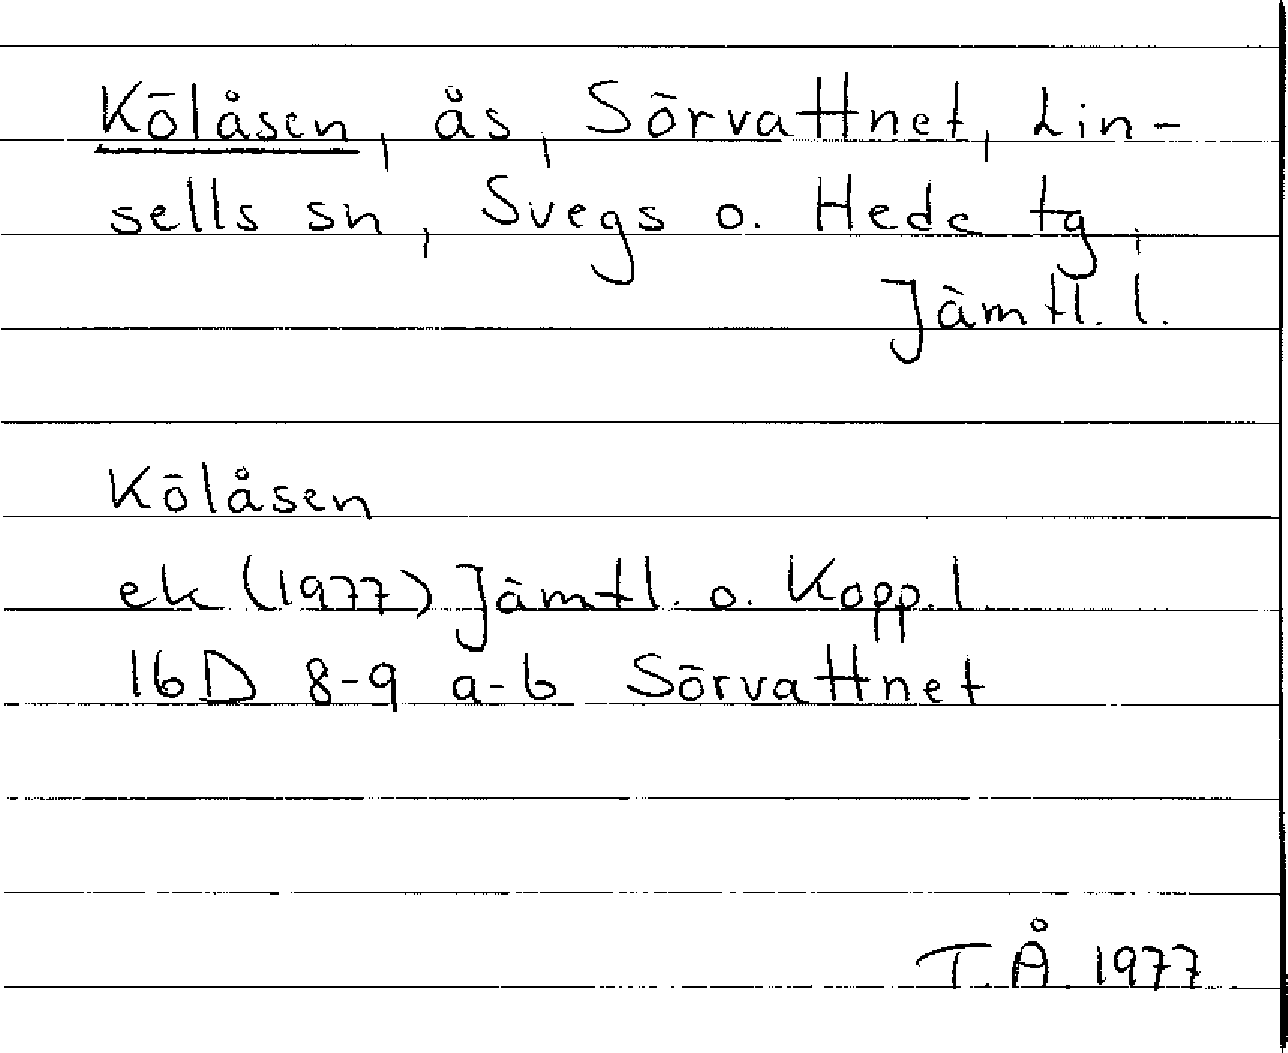 Kölåsen, ås, Sörvattnet, Lin-
sells sn, Svegs o. Hede tg,
Jämtl. l.
Kölåsen
ek (1977) Jämtl. o. Kopp. l.
16D 8-9 a-b Sörvattnet
T.Å. 1977